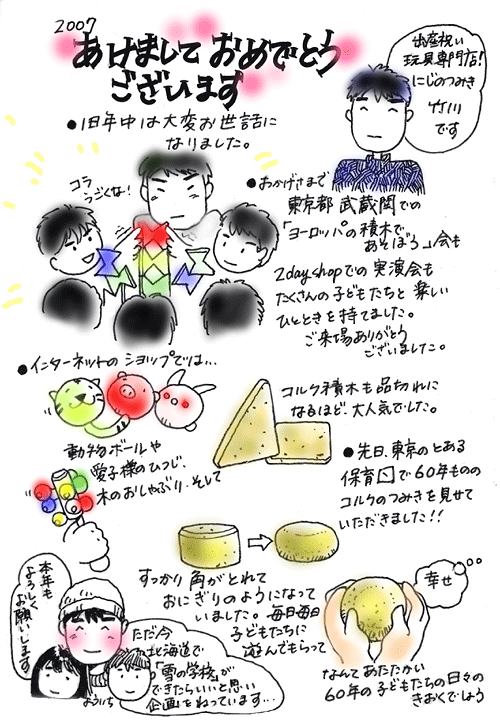 2007
あけまして おめでとう
ございます
出産祝い
玩具専門店!
にじのつみき
竹川
です
●旧年中は大変お世話に
なりました。
コラ
うごくな!
●おかげさまで
東京都 武蔵関での
「ヨーロッパの積木で
あそぼう」会も
2day shopでの実演会も
たくさんの子どもたちと 楽しい
ひとときを持てました。
ご来場ありがとう
ございました。
●インターネットの ショップでは…
動物ボールや
愛子様のひつじ、
木のおしゃぶり、そして
コルク積木も品切れに
なるほど、大人気でした。
●先日、東京のとある
保育口で60年ものの
コルクのつみきを見せて
いただきました!!
すっかり角がとれて
おにぎりのようになって
いました。毎日毎日
子どもたちに
遊んでもらって
幸せ
なんてあたたかい
60年の子どもたちの日々の
きおくでしょう
本年も
よろしく
お願いします
ただ今
北海道で
「雪の学校」が
できたらいいと思い
企画をねっています…
よういち